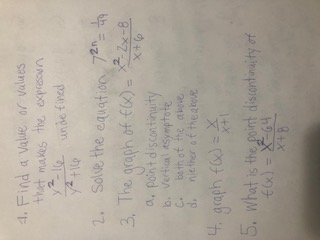 1. Find a value or values
that makes the expression
y²-16 / y²+16 undefined
2. Solve the equation 7²ⁿ = 1/49
3. The graph of f(x) = x²-2x-8 / x+6
a. point discontinuity
b. vertical asymptote
c. both of the above
d. niether of the above
4. graph f(x) = x / x+1
5. what is the point discontinuity of
f(x) = x²-64 / x+8